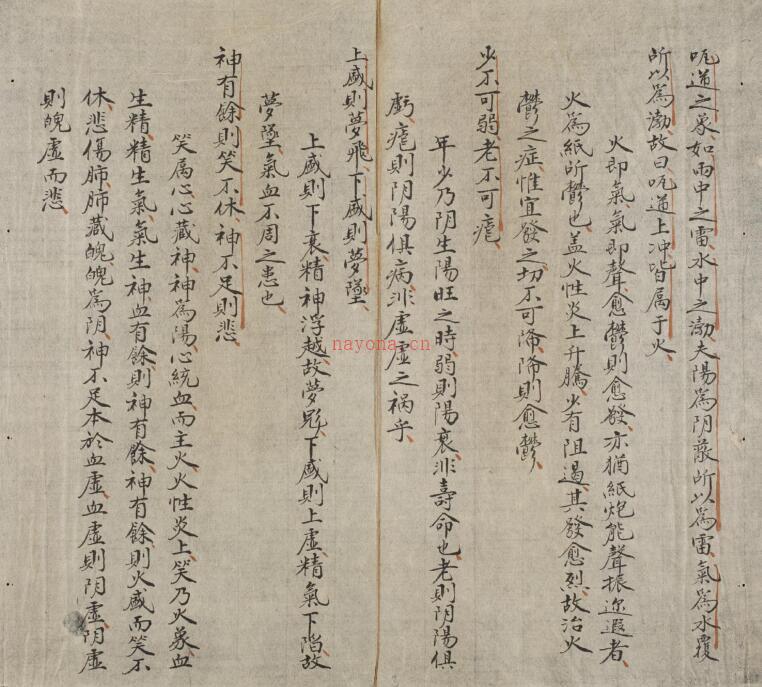 呃逆之象如雨中之雷水中之渤夫陽為阴蔽所以為雷氣為水覆
所以為渤故曰呃逆上冲皆属于火
火即氣氣即聲愈鬱則愈發亦猶紙炮能聲振迩遐者
火為紙所鬱也盖火性炎上升騰少有阻遏其發愈烈故治火
鬱之症惟宜發之切不可降降則愈鬱
少不可弱老不可瘧
年少乃阴生陽旺之時弱則陽衰非壽命也老則阴陽俱
虧瘧則阴陽俱病非虛虛之祸乎
上盛則夢飛下盛則夢墜
上盛則下衰精神浮越故夢飛下盛則上虛精氣下陷故
夢墜氣血不周之患也
神有餘則笑不休神不足則悲
笑属心心藏神神為陽心統血而主火火性炎上笑乃火象血
生精精生氣氣生神血有餘則神有餘神有餘則火盛而笑不
休悲傷肺肺藏魄魄為阴神不足本於血虛血虛則阴虛阴虛
則魄虛而悲
nayona.cn